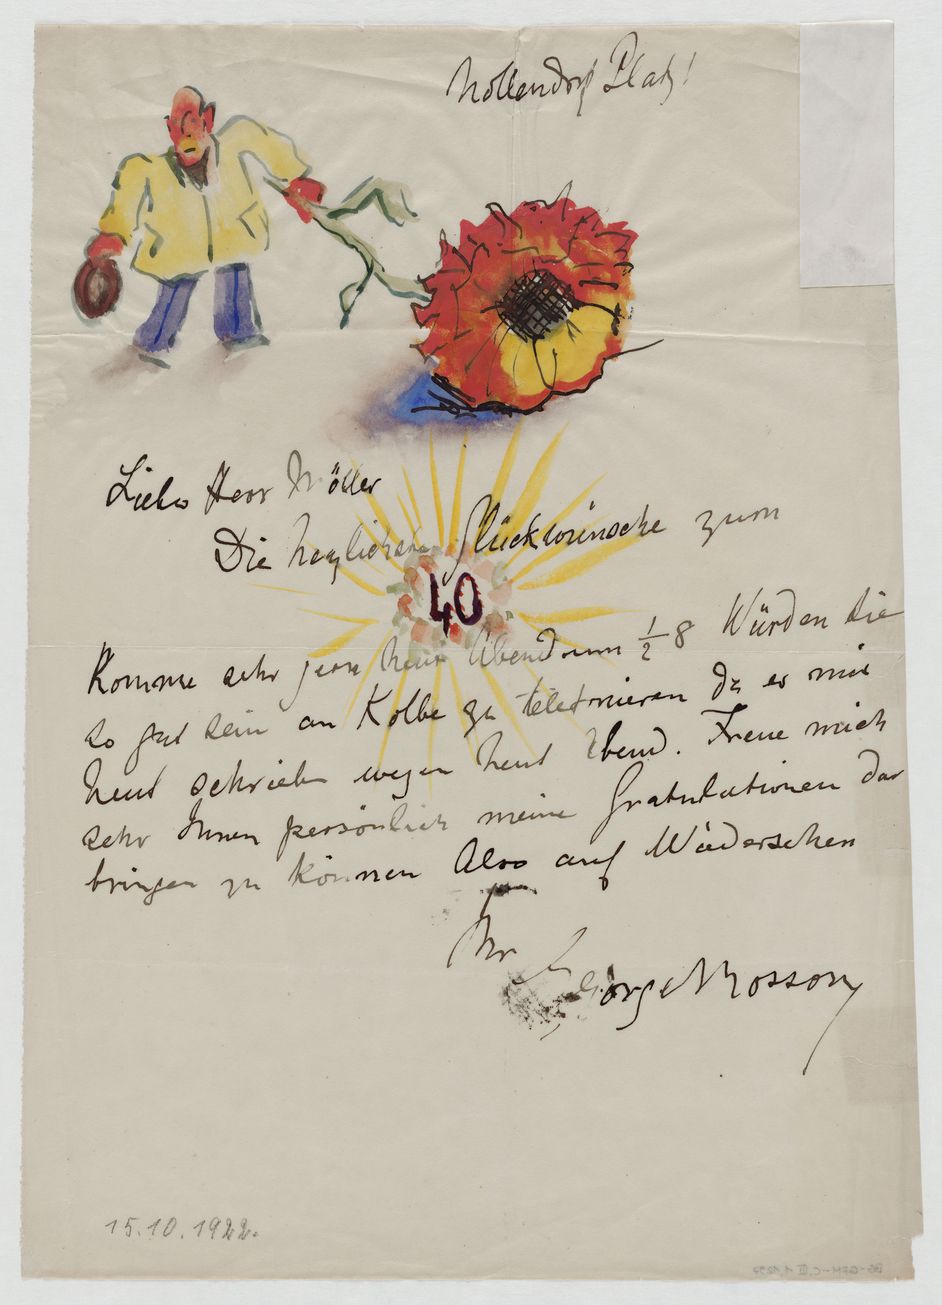 Nollendorf Platz!
Lieber Herr Möller
Die herzlichsten Glückwünsche zum
40
Komme sehr gern heut Abend um ½ 8 Würden Sie
so gut sein an Kolbe zu telefonieren da er mir
heut schrieb wegen heut Abend. Freue mich
sehr Ihnen persönlich meine Gratulationen dar
bringen zu können Also auf Wiedersehen
Ihr
George Mosson
15.10.1922.